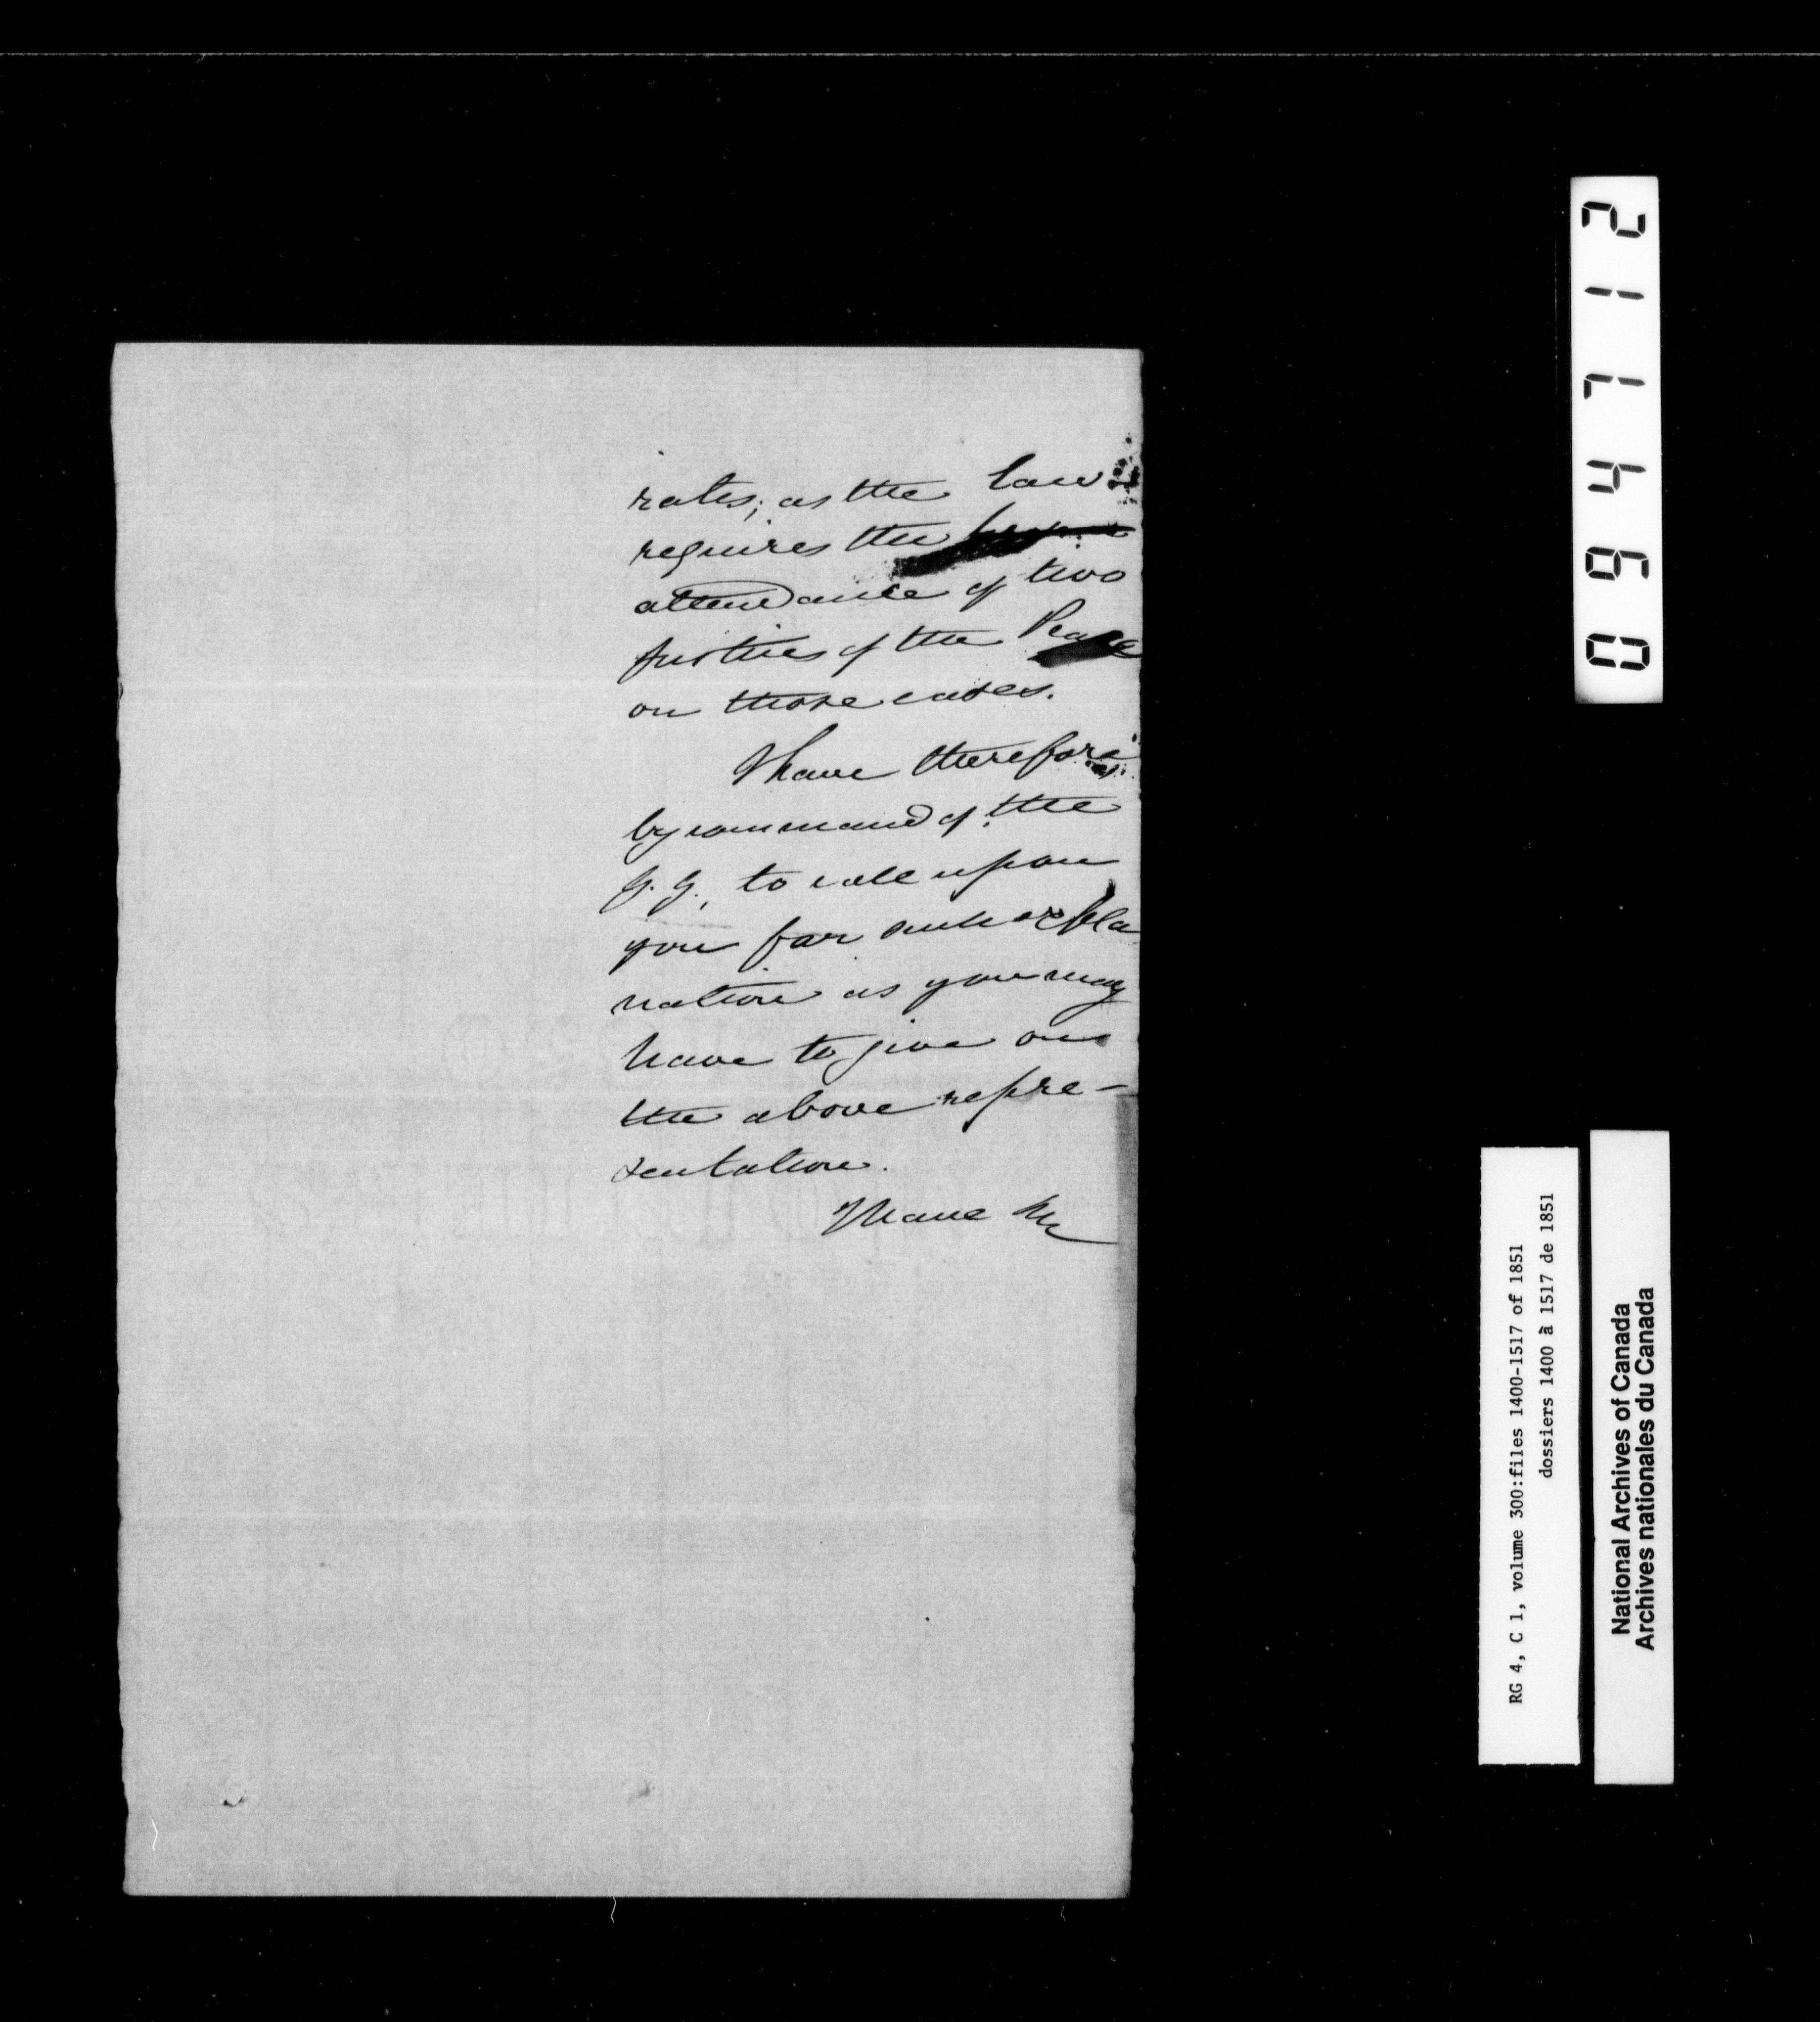 rates; as the law
requires the
attendance of two
Justices of the Peace
on those cases.
I have therefore
by command of the
G. G., to call upon
you for such expla
nation as you may
have to give on
the above repre-
sentation.
I have &c
094712
RG 4, C 1, volume 300:files 1400-1517 of 1851
dossiers 1400 à 1517 de 1851
National Archives of Canada
Archives nationales du Canada